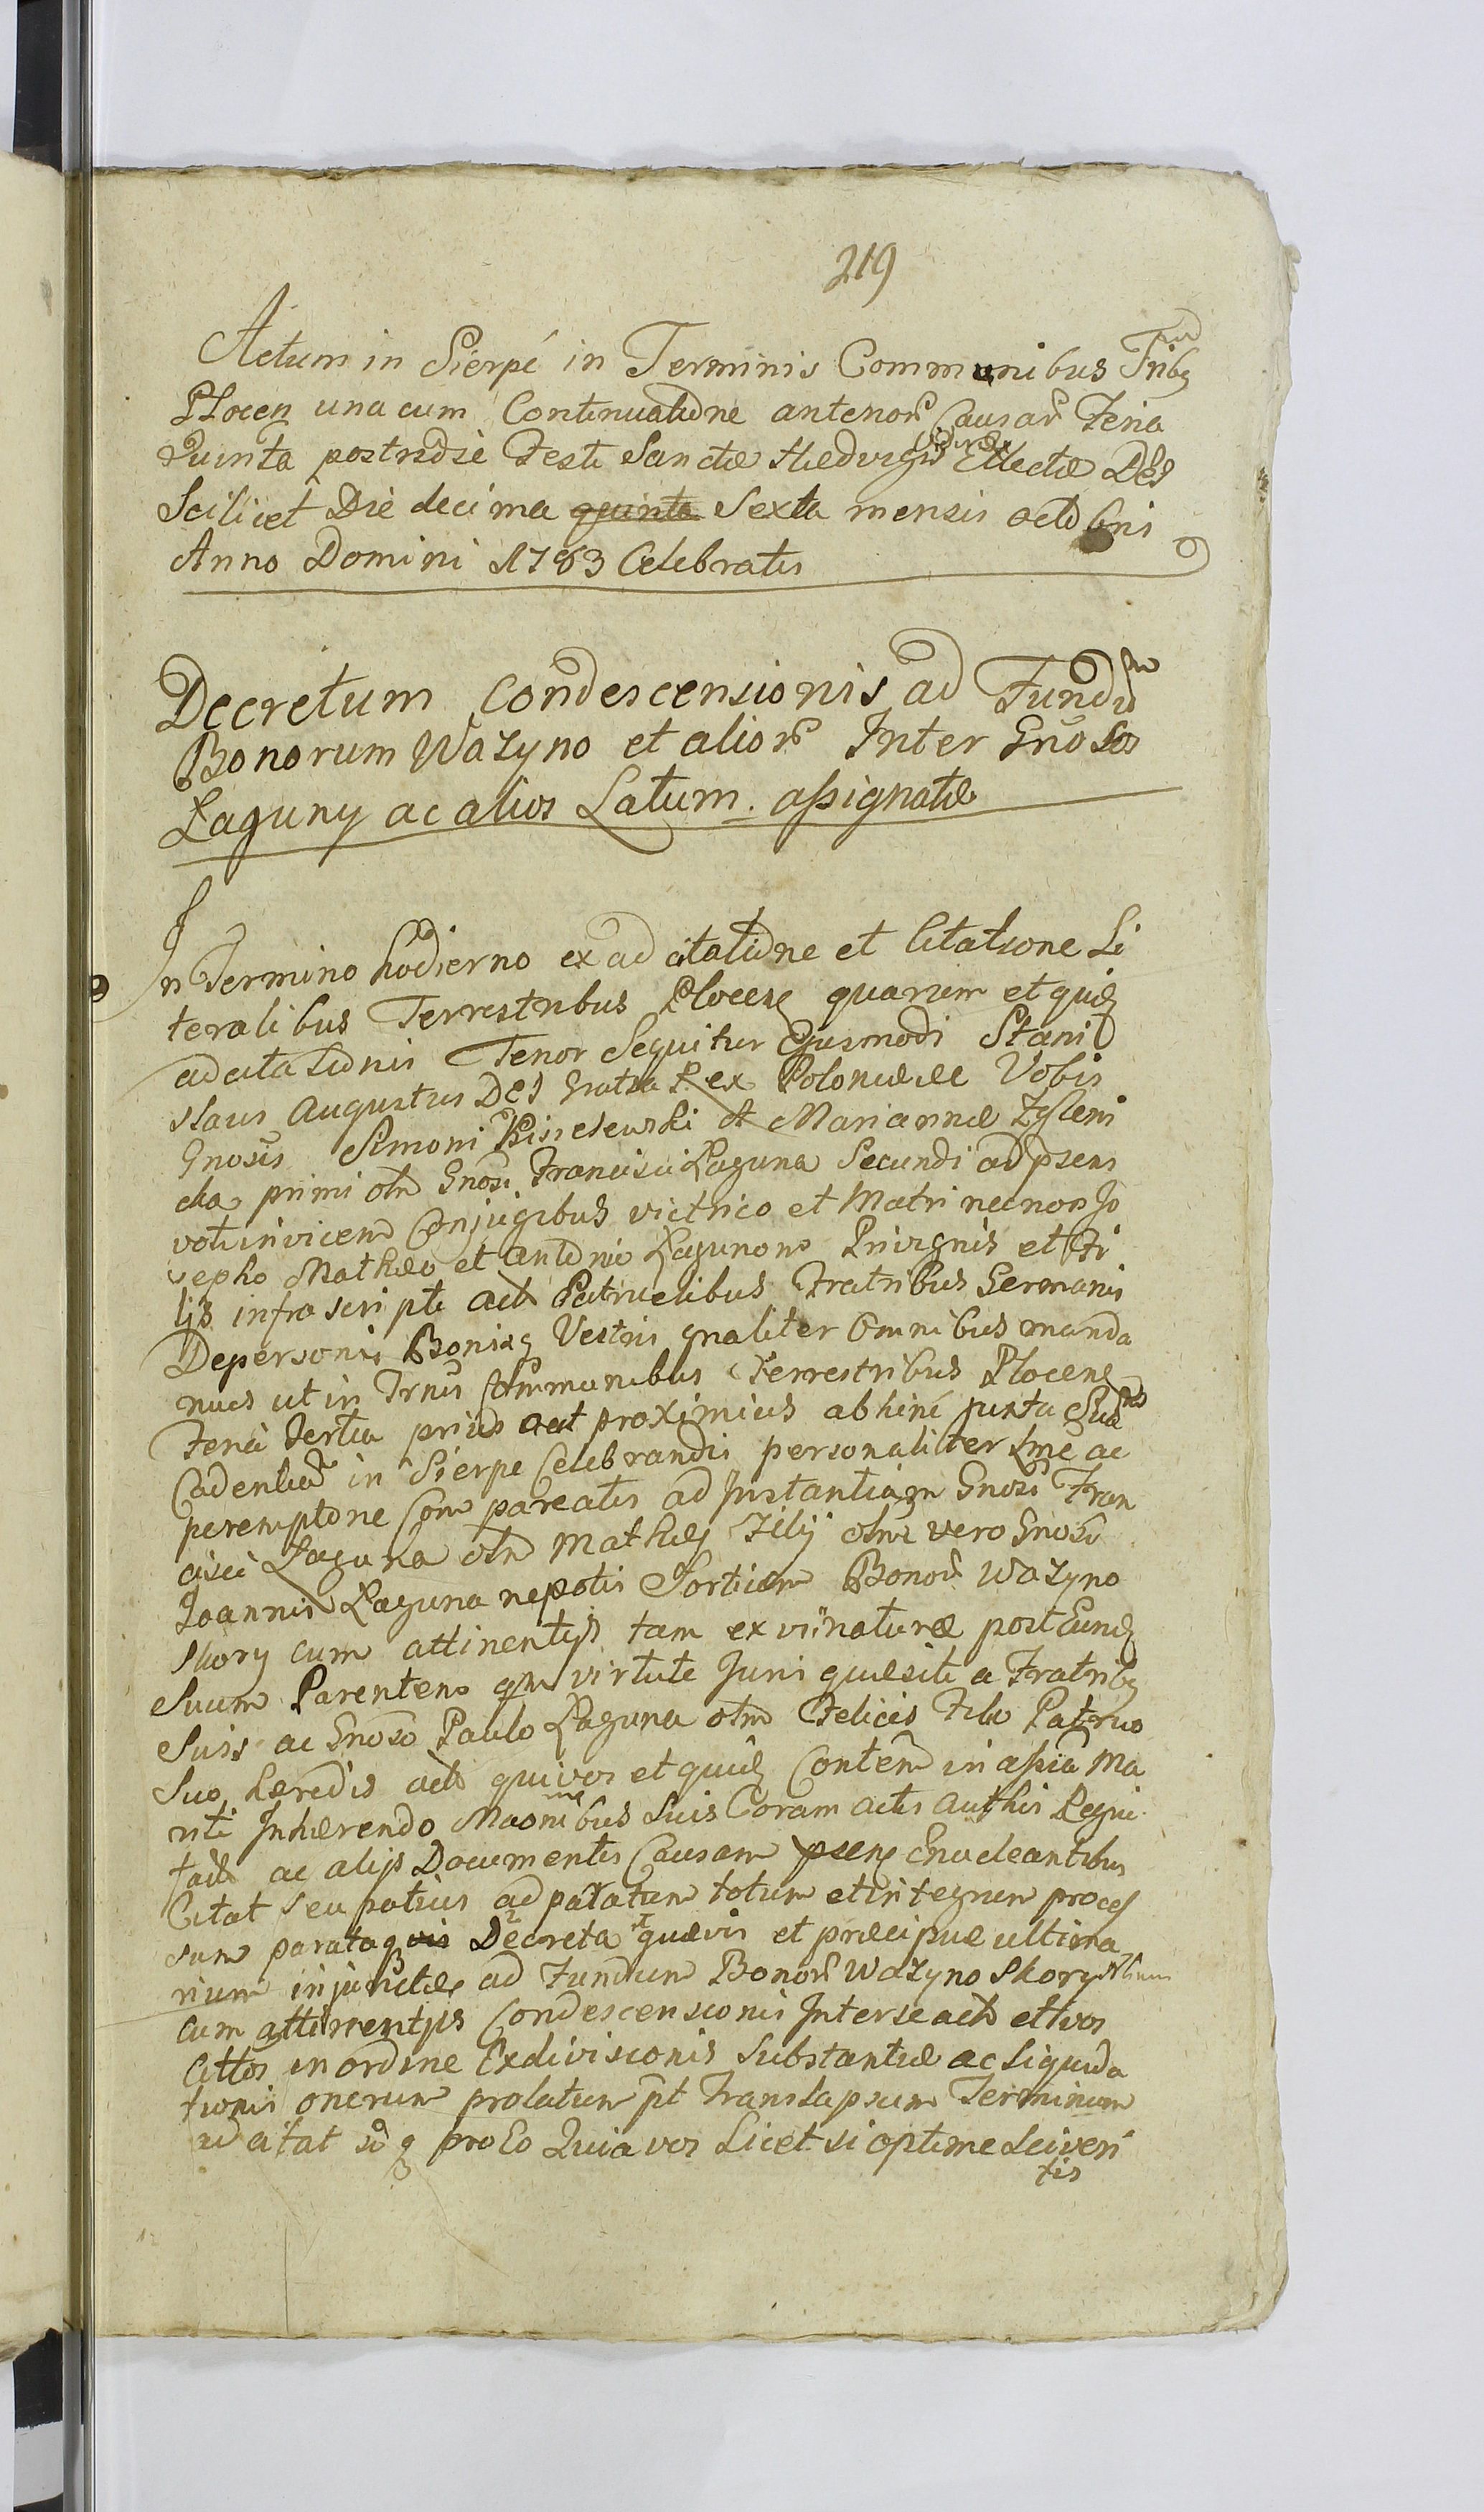 219
Actum in Sierpć in Terminis Communibus Tribq
Plocen una cum Continuatione anterior Causar Feria
Quinta postridie Festi Sanctæ Hedvigis Viduæ Electæ Dei
Scilicet Die decima quinta Sexta mensis octobris
Anno Domini 1783 Celebratis
Decretum Condescensionis ad Fundum
Bonorum Wazyno et alior Inter Gnosos
Łaguny ac alios Latum. assignatæ
In Termino hodierno ex ad citatione et Citatione Li
teralibus Terrestribus Plocens quarum et quidem
adcitationis Tenor Sequitur Ejusmodi Stani
slaus Augustus Dei Gratia Rex Poloniæ Vobis
Gnosis Simoni et Mariannæ
cka primi olim Gnosi Francisci Łaguna Secundi ad præsens
voti invicem Conjugibus victrico et Matri necnon Jo
sepho Mathæo et Antonio Łagunom Privignis et Fi
lijs infra scripti act Patruelibus Fratribus Germanis
De personis Bonisq Vestris gnaliter Omnibus manda
mus ut in Trnis Communibus Terrestribus Plocens
Feria Tertia prius aut proximius abhinc juxta Suas
Cadentias in Sierpc Celebrandis personaliter tme ac
peremptorie Compareatis ad Instantiam Gnosi Fran
cisci Łaguna olim Mathæi Filij olim vero Gnosi
Joannis Łaguna nepotis Sortium Bonor Wazyno
Skory cum attinentijs tam ex vi naturæ post Eund
Suum Parentem qm virtute Juris quæsiti a Fratribq
Suis ac Gnoso Paulo Łaguna olim Felicis Filio Patruo
Suo hæredis act qui vos et quid Content in assia Ma
nti Inhærendo Maonibus Suis Coram actis authis
ac alijs Documentis Causam psens Enucleantibus
Citat seu potius ad paratum totum et integrum proces
sum parataq vis Decreta quævis et præcipue ultima
rium injunctæ ad Fundum Bonor Wazyno Skory
cum attinentijs Condescensionis Inter se act et vos
Cittos in ordine Exdivisionis Substantiæ ac Liquida
tionis onerum prolatum pt Translapsum Terminum
ad citat pro Eo Quia vos Licet si optime Sciveri
tis